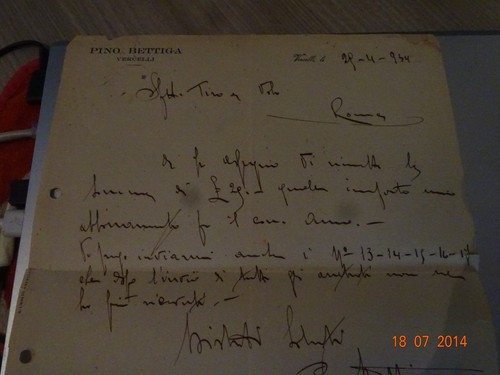 PINO BETTIGA
VERCELLI
Vercelli, li 29-4-934
Spett. Tiro a Volo
Roma
A ½ assegno Vi rimetto la
Somma di £ 29.- quale importo mio
abbonamento per il corr. anno.-
Vi prego inviarmi anche i Nº 13-14-15-16-17
che dopo l'invio di tutti gli arretrati non ne
ho più ricevuti.-
Distinti Saluti
18 07 2014